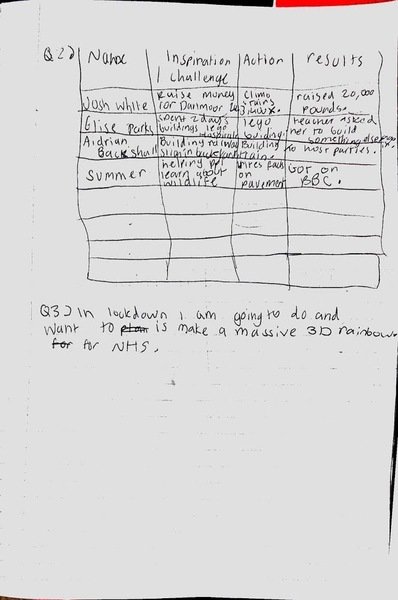 Q2) Name | Inspiration / challenge | Action | results
Josh White | Raise money for Dartmoor | Climb stairs | raised 20,000 pounds.
Elise parks | spent 2 days buildings lego | lego building | teacher asked her to build something else
Aidrian Back shall | Building railway in back | Building train. | to host parties.
Summer | helping ppl learn about wildlife | on pavement | Got on BBC.
Q3) In lockdown i am going to do and
want to plan is make a massive 3D rainbow
for for NHS.